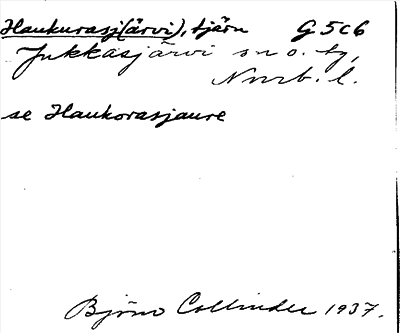 Haukurasj(ärvi), tjärn G5c6
Jukkasjärvi sn o. tg,
Nnrb. l.
se Haukorasjaure
Björn Collinder 1937.